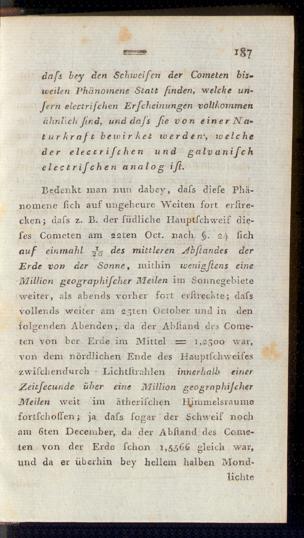 187
daſs bey den Schweifen der Cometen bis-
weilen Phänomene Statt finden, welche un-
ſern electriſchen Erſcheinungen vollkommen
ähnlich ſind, und daſs ſie von einer Na-
turkraft bewirket werden, welche
der electriſchen und galvaniſch
electriſchen analog iſt.
Bedenkt man nun dabey, daſs dieſe Phä-
nomene ſich auf ungeheure Weiten fort erſtre-
cken; daſs z. B. der ſüdliche Hauptſchweif die-
ſes Cometen am 22ten Oct. nach §. 24 ſich
auf einmahl des mittleren Abſtandes der
Erde von der Sonne, mithin wenigſtens eine
Million geographiſcher Meilen im Sonnegebiete
weiter, als abends vorher fort erſtreckte; daſs
vollends weiter am 23ten October und in den
folgenden Abenden, da der Abſtand des Come-
ten von der Erde im Mittel = 1,2300 war,
von dem nördlichen Ende des Hauptſchweifes
zwiſchendurch Lichtſtrahlen innerhalb einer
Zeitſecunde über eine Million geographiſcher
Meilen weit im ätheriſchen Himmelsraume
fortſchoſſen; ja daſs ſogar der Schweif noch
am 6ten December, da der Abſtand des Come-
ten von der Erde ſchon 1,5566 gleich war,
und da er überhin bey hellem halben Mond-
lichte